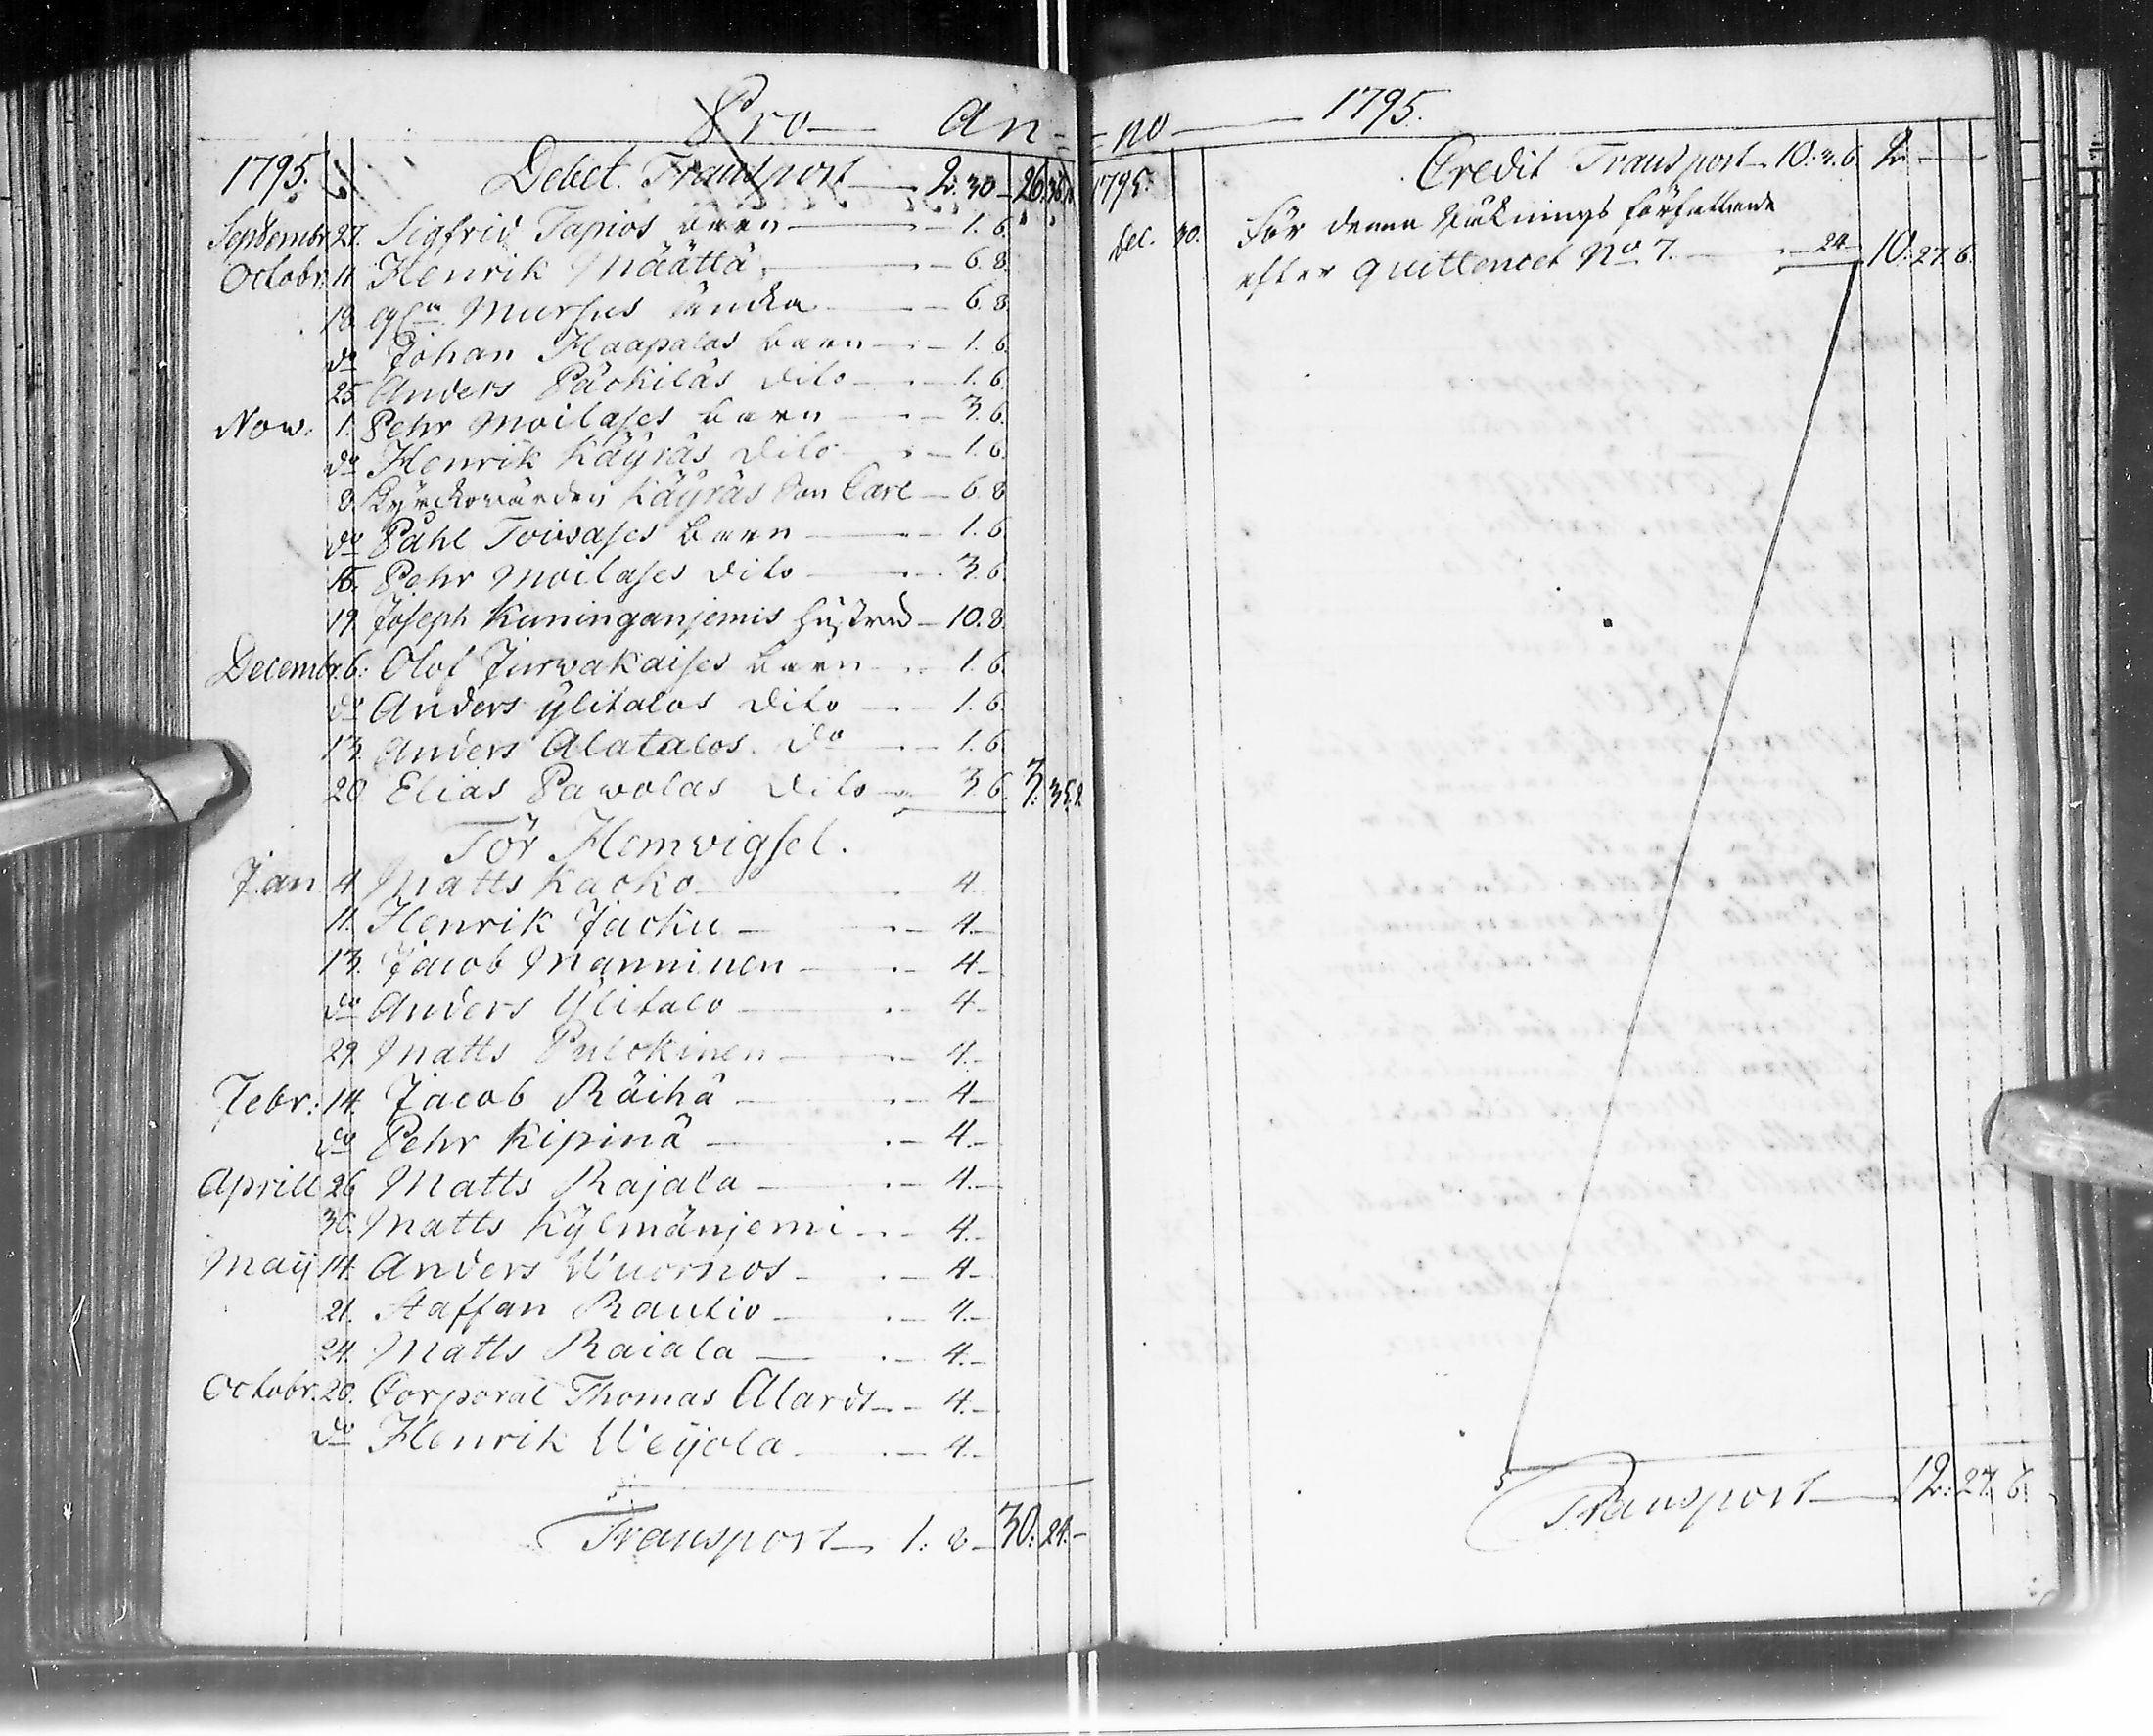 Pro — An-
1795. Debet. Transport — 2. 30 — 26. 36.
Septembr 27. Sigfrid Tapios barn — 1. 6.
Octobr. 11. Henrik Määttä — 6. 8.
18. Mursus äncka — 6. 8.
do Johan Haapalas barn — 1. 6.
25. Anders Päckiläs dito — 1. 6.
Now: 1. Pehr Moilases barn — 3. 6.
do Henrik Käyräs dito — 1. 6.
8. Kyrckowärden Käyräs Son Carl — 6. 8
do Påhl Toivases barn — 1. 6
15. Pehr Moilases dito — 3. 6.
19. Joseph Kuninganjemis hustru — 10. 8.
Decembr. 6. Olof Jurwakaises barn — 1. 6.
do Anders Ylitalos dito — 1. 6.
13. Anders Alatalos. do — 1. 6
20 Elias Pawolas dito — 3 6. 3: 35. 2
För Hemvigsel.
Jan 4 Matts Kacko — 4.
11. Henrik Jacku — 4.—
13. Jacob Manninen — 4—
do Anders Ylitalo — 4—
29. Matts Pulckinen — 4.—
Febr: 14. Jacob Räihä — 4—
do Pehr Kipinä — 4.—
Aprill 26 Matts Rajala — 4.—
30. Matts Kylmänjemi — 4.—
Maij 14. Anders Wuornos — 4—
21. Staffan Rautio — 4.—
24. Matts Raiala — 4.—
Octobr. 20. Corporal Thomas Alardt — 4.—
do Henrik Weijola — 4—
Transport — 1: 8 — 30: 24.—
-no — 1795.
1795. Credit Transport — 10. 3. 6 2. —
Dec. 30. För denna Räknings författande
efter quittencet No 7. — 24 — 10. 27. 6.
Transport — 12. 27. 6.